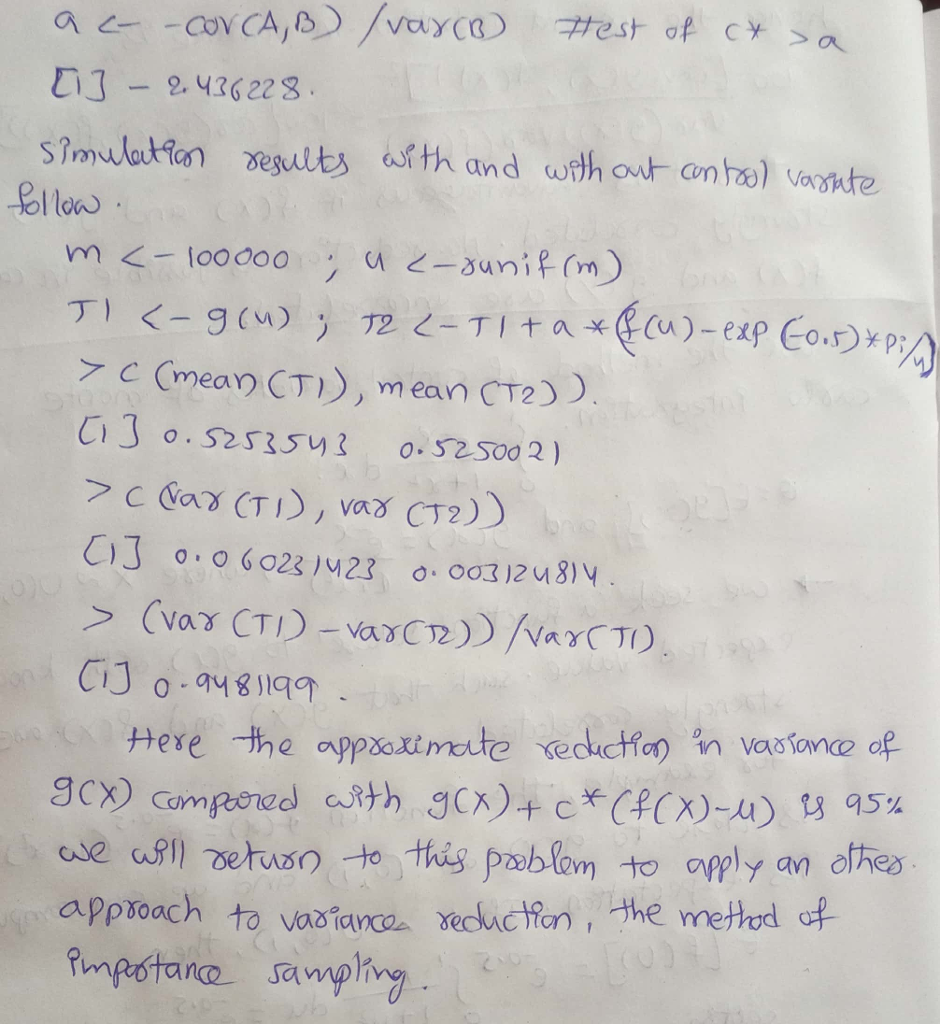 a <- -cov(A,B) /var(B) #est of c* >a
[1] - 2.436228.
Simulation results with and with out control variate
follow.
m <- 100000 ; u <- runif(m)
T1 <- g(u) ; T2 <- T1 + a * (f(u) - exp (-0.5)*pi/4)
> c (mean (T1), mean (T2)).
[1] 0.5253543 0.5250021
> c (var (T1), var (T2))
[1] 0.060231423 0.003124814.
> (var (T1) - var(T2)) /var(T1).
[1] 0.9481199.
Here the approximate reduction in variance of
g(X) compared with g(X) + c* (f(X)-μ) is 95%
we will return to this problem to apply an other
approach to variance reduction, the method of
importance sampling.